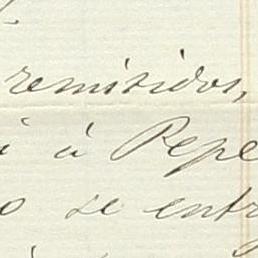 remitidos,
i á Pepe
o se entr